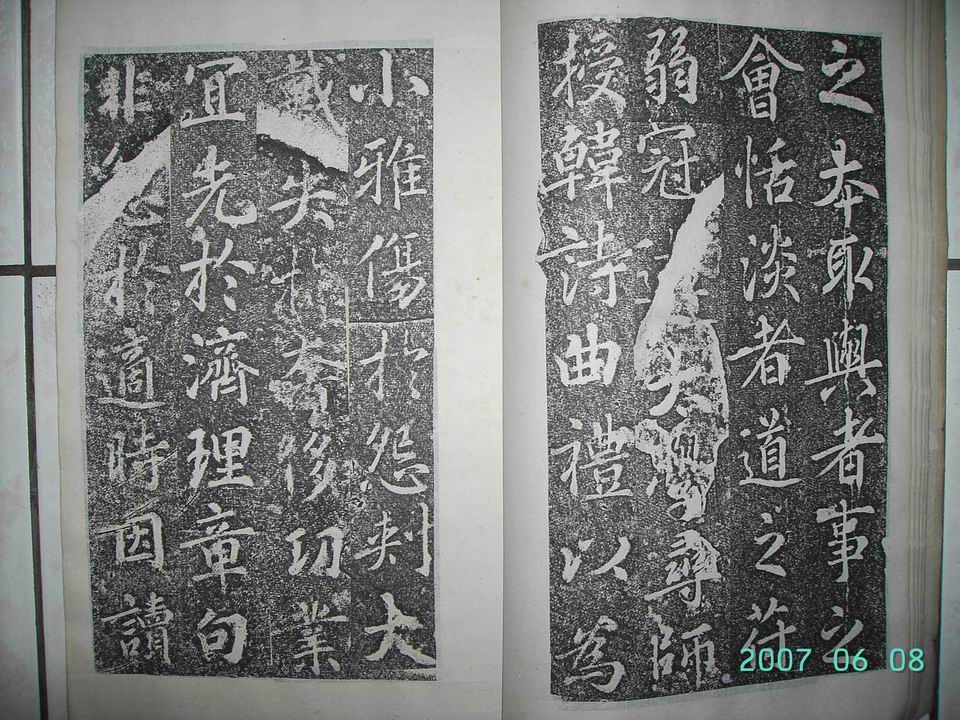 之本取與者事之
會恬淡者道之符
弱冠 大學尋師
授韓詩曲禮以為
小雅傷於怨刺大
戴失於奢侈切業
宜先於濟理章句
非急於適時因讀
2007 06 08